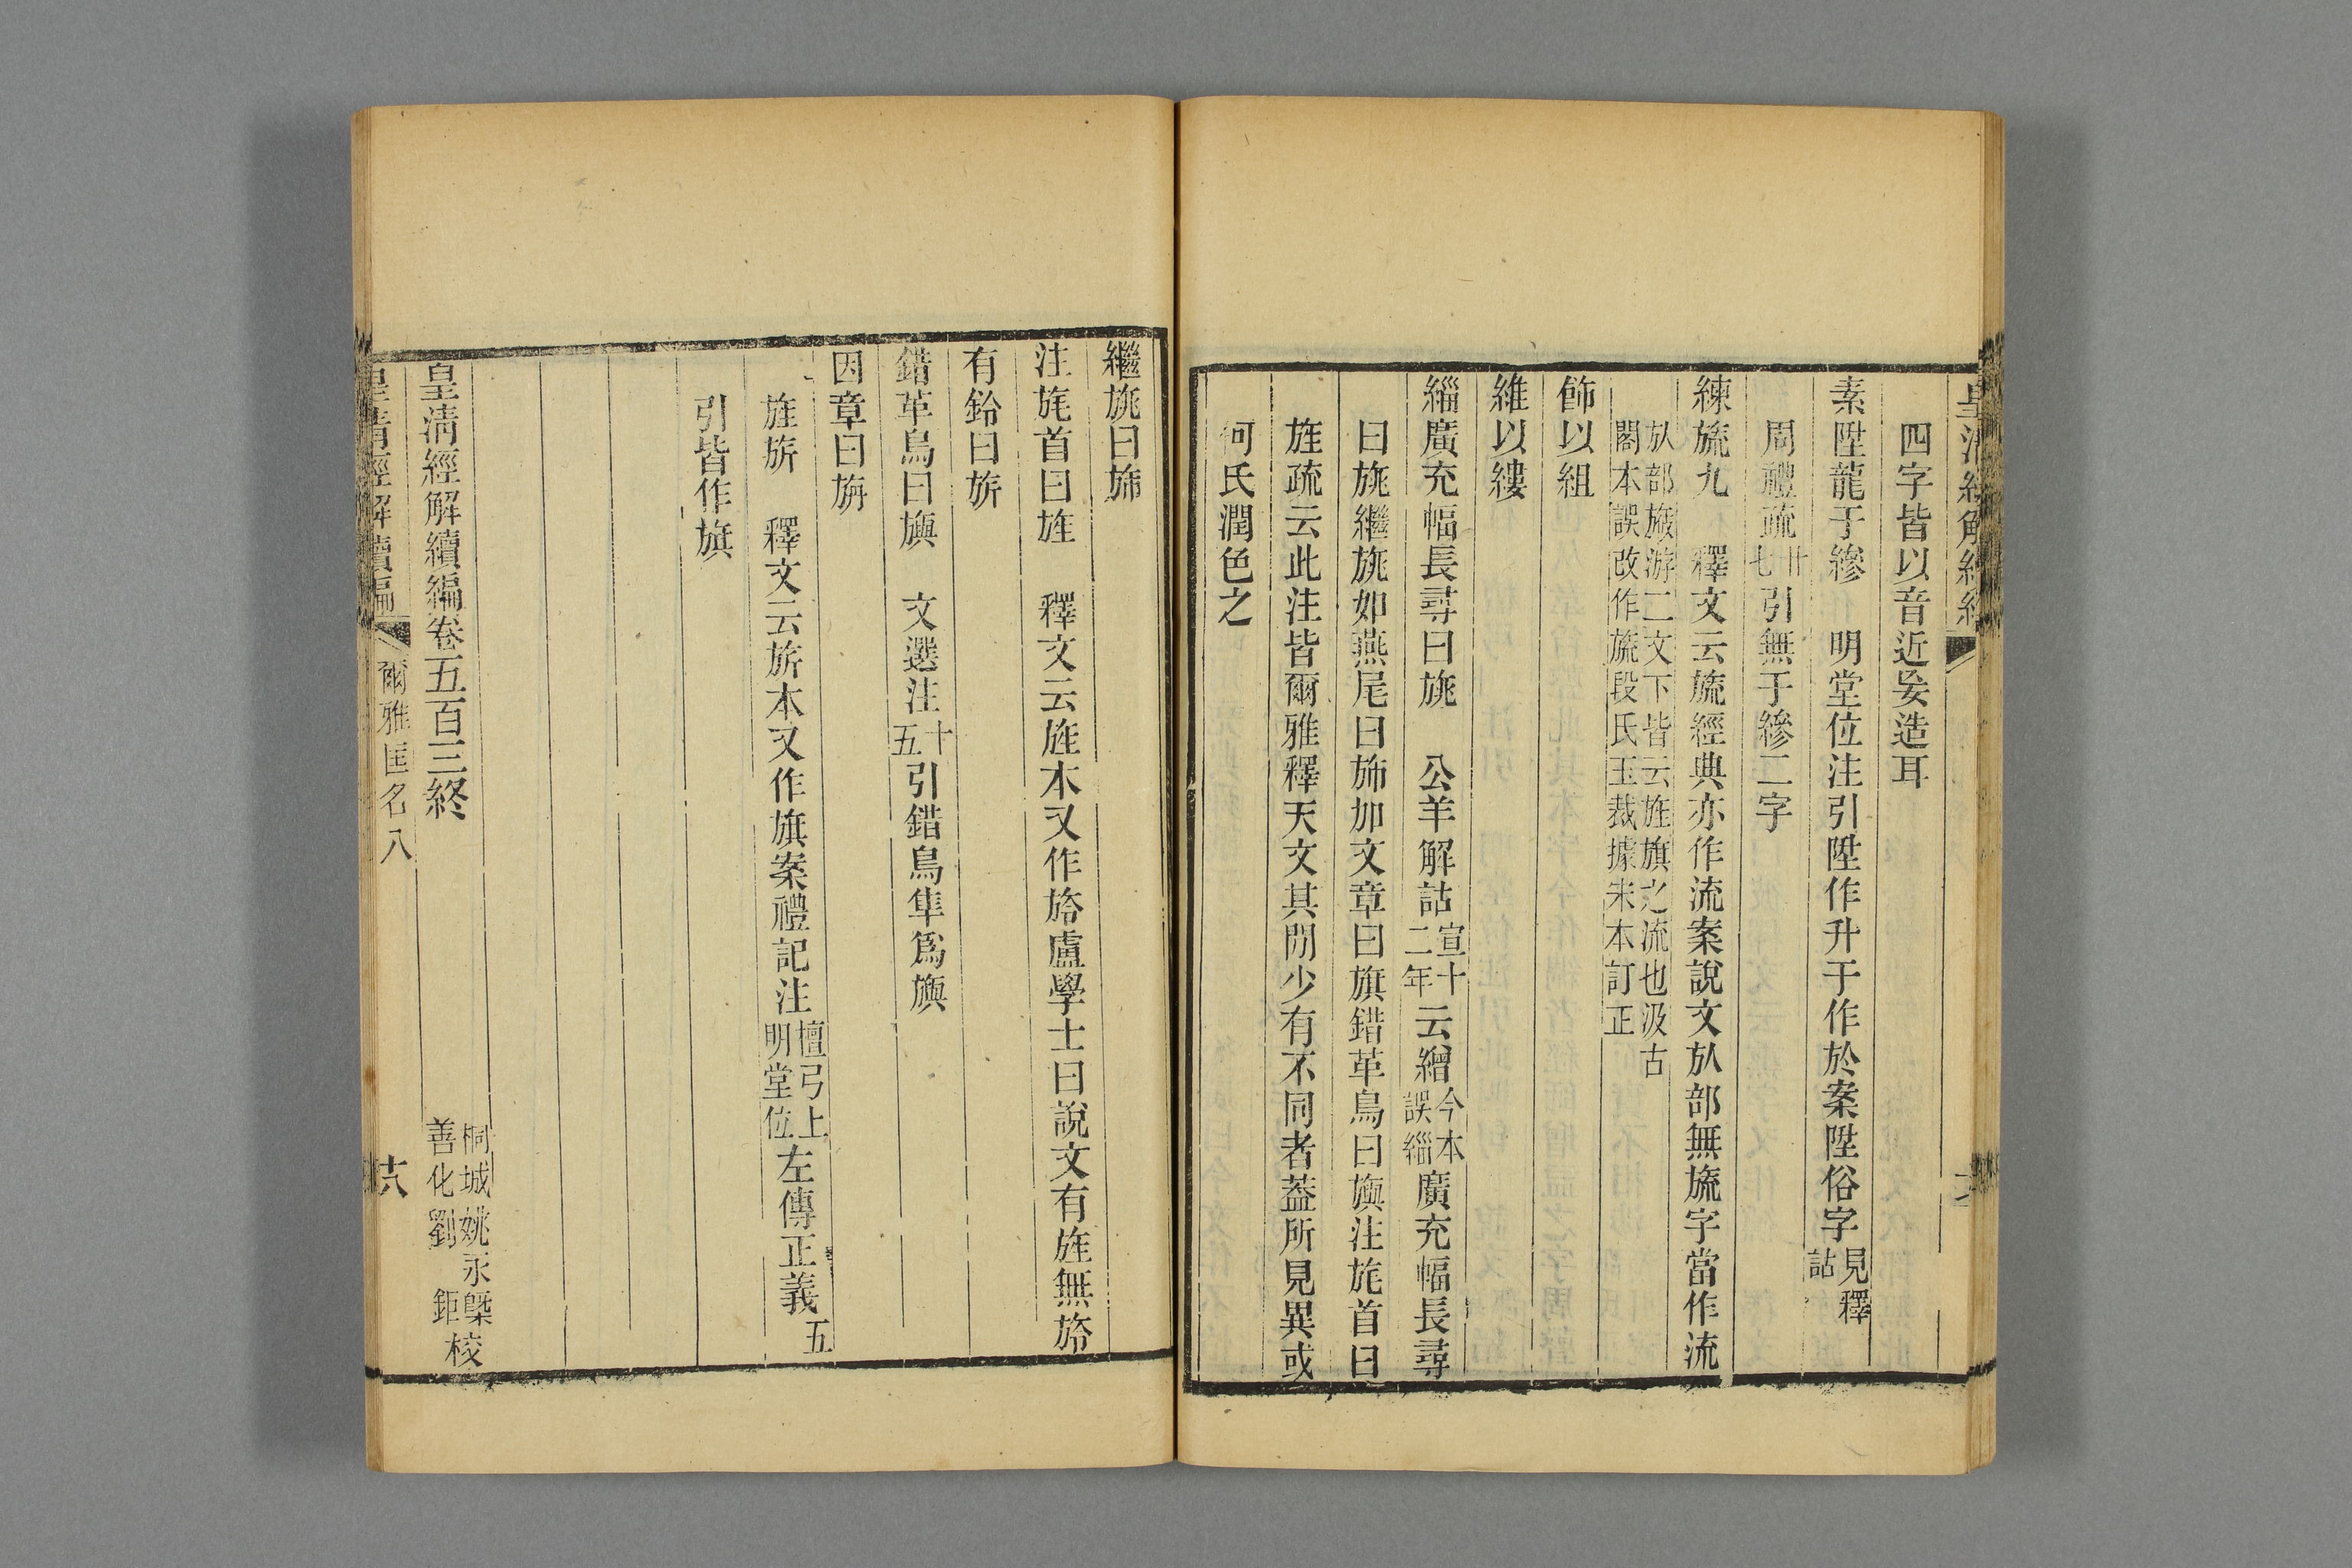 四字皆以音近妄造耳
素陞龍于縿　明堂位注引陞作升于作於案陞俗字見釋詁
周禮疏廿七引無于縿二字
練旒九　釋文云旒經典亦作流案說文㫃部無旒字當作流
㫃部㫍游二文下皆云旌旗之流也汲古
閣本誤改作旒段氏玉裁據宋本訂正
飾以組
維以縷
緇廣充幅長尋曰旐　公羊解詁宣十二年云繒今本誤緇廣充幅長尋
曰旐繼旐如燕尾曰斾加文章曰旗錯革鳥曰旟注旄首曰
旌疏云此注皆爾雅釋天文其閒少有不同者葢所見異或
何氏潤色之
繼旐曰斾
注旄首曰旌　釋文云旌本又作旍盧學士曰說文有旌無旍
有鈴曰旂
錯革鳥曰旟　文選注十五引錯鳥隼爲旟
因章曰旃
旌旂　釋文云旂本又作旗案禮記注檀弓上明堂位左傳正義五
引皆作旗
皇淸經解續編卷五百三終
桐城姚永㮣
善化劉鉅校
皇淸經解續編
爾雅匡名八